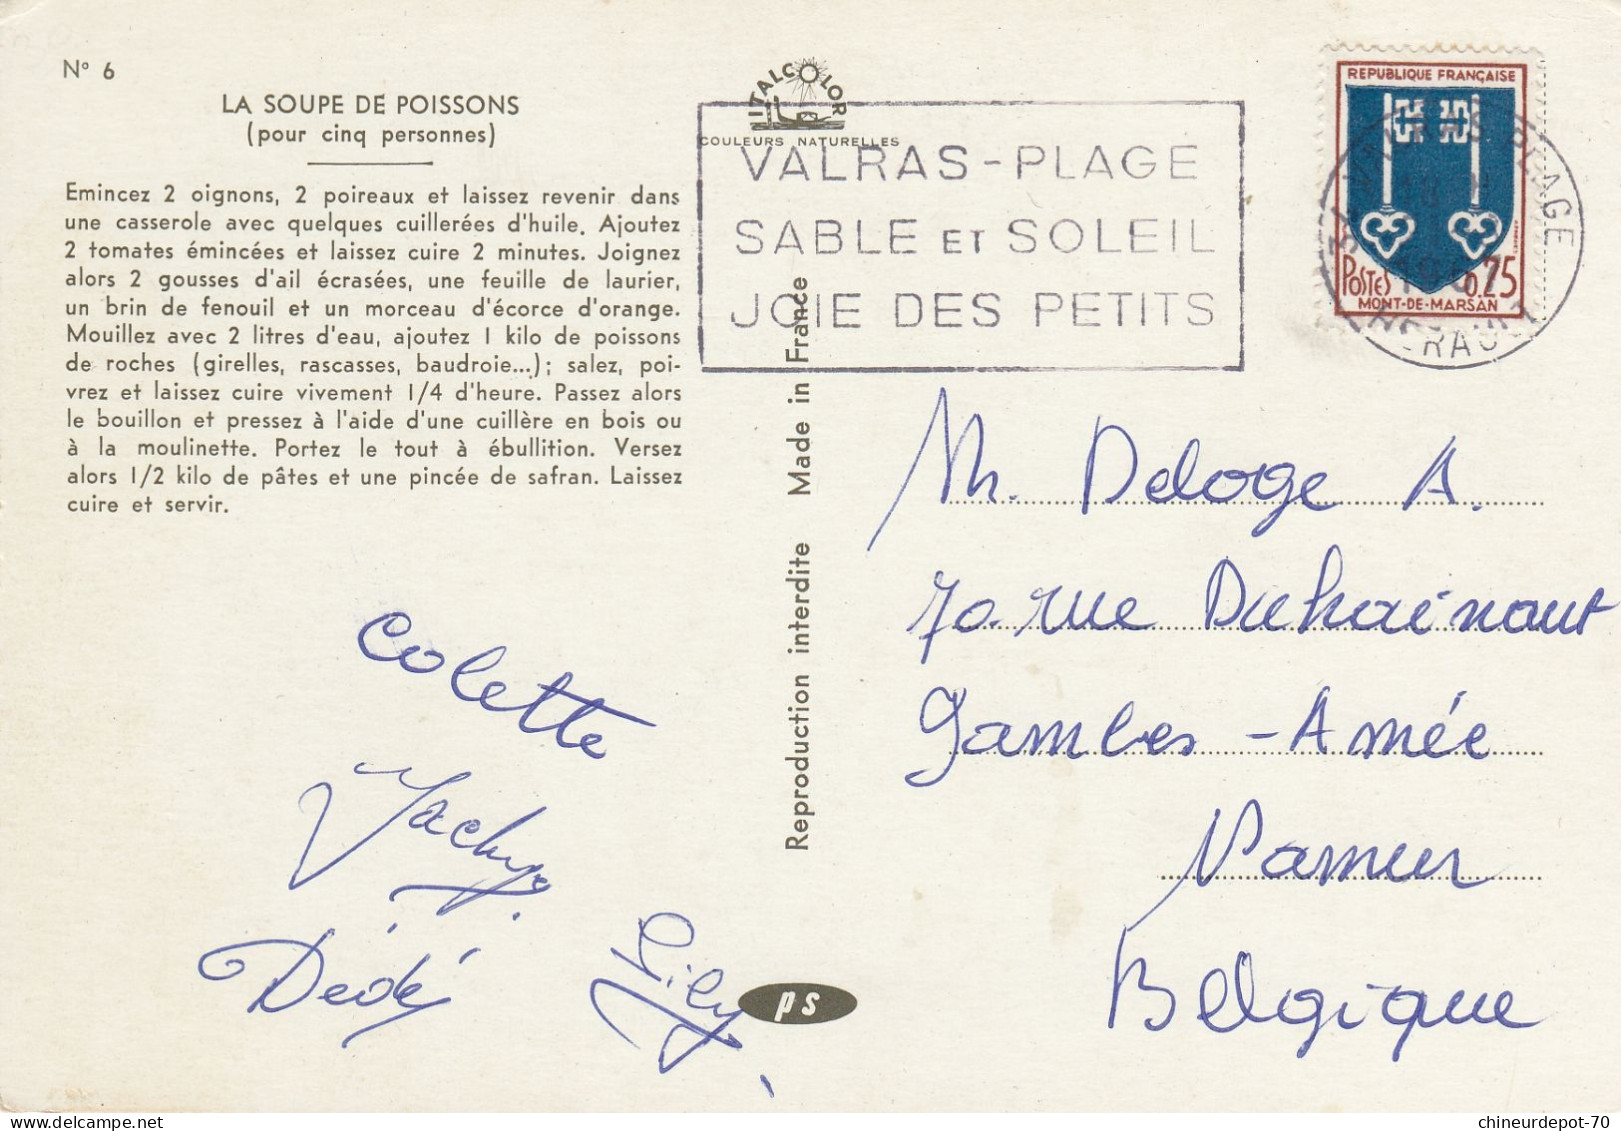 N° 6
LA SOUPE DE POISSONS
(pour cinq personnes)
Emincez 2 oignons, 2 poireaux et laissez revenir dans
une casserole avec quelques cuillerées d'huile. Ajoutez
2 tomates émincées et laissez cuire 2 minutes. Joignez
alors 2 gousses d'ail écrasées, une feuille de laurier,
un brin de fenouil et un morceau d'écorce d'orange.
Mouillez avec 2 litres d'eau, ajoutez 1 kilo de poissons
de roches (girelles, rascasses, baudroie...); salez, poi-
vrez et laissez cuire vivement 1/4 d'heure. Passez alors
le bouillon et pressez à l'aide d'une cuillère en bois ou
à la moulinette. Portez le tout à ébullition. Versez
alors 1/2 kilo de pâtes et une pincée de safran. Laissez
cuire et servir.
Colette
Jacky
Dédé
Lily
ITALCOLOR
COULEURS NATURELLES
VALRAS-PLAGE
SABLE ET SOLEIL
JOIE DES PETITS
Reproduction interdite Made in France
ps
REPUBLIQUE FRANÇAISE
POSTES 0.25
MONT-DE-MARSAN
VALRAS PLAGE
HERAULT
M. Deloge A.
70. rue Duhainaut
Jambes - Amée
Namur
Belgique
chineurdepot-70